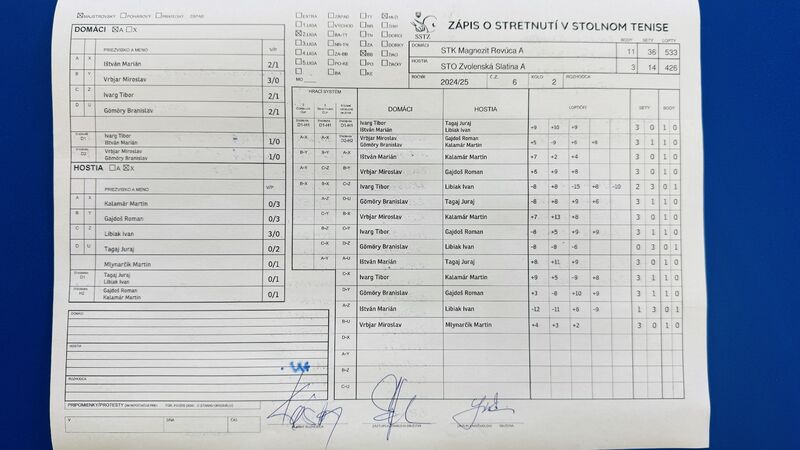 MAJSTROVSKÝ POHÁROVÝ PRIATEĽSKÝ ZÁPAS
DOMÁCI A X
PRIEZVISKO A MENO V/P
A X Ištván Marián 2/1
B Y Vrbjar Miroslav 3/0
C Z Ivarg Tibor 2/1
D U Gömöry Branislav 2/1
D1 Ivarg Tibor
Ištván Marián 1/0
D2 Vrbjar Miroslav
Gömöry Branislav 1/0
HOSTIA A X
PRIEZVISKO A MENO V/P
A X Kalamár Martin 0/3
B Y Gajdoš Roman 0/3
C Z Libiak Ivan 3/0
D U Tagaj Juraj 0/2
Mlynarčík Martin 0/1
D1 Tagaj Juraj
Libiak Ivan 0/1
H2 Gajdoš Roman
Kalamár Martin 0/1
DOMÁCI
HOSTIA
ROZHODCA
PRIPOMIENKY/PROTESTY
V DŇA ČAS
EXTRA ZÁPAD TT MUŽI
1.LIGA VÝCHOD NR ŽENY
2.LIGA BA-TT TN DORCI
3.LIGA NR-TN ZA DORKY
4.LIGA ZA-BB BB ŽIACI
5.LIGA PO-KE PO ŽIAČKY
BA KE
MO
SSTZ
ZÁPIS O STRETNUTÍ V STOLNOM TENISE
BODY SETY LOPTY
DOMÁCI STK Magnezit Revúca A 11 36 533
HOSTIA STO Zvolenská Slatina A 3 14 426
ROČNÍK 2024/25 Č.Z. 6 KOLO 2 ROZHODCA
HRACÍ SYSTÉM DOMÁCI HOSTIA LOPTIČKY SETY BODY
D1-H1 D1-H1 D1-H1 Ivarg Tibor Tagaj Juraj
Ištván Marián Libiak Ivan +9 +10 +9 3 0 1 0
A-X A-X D2-H2 Vrbjar Miroslav Gajdoš Roman
Gömöry Branislav Kalamár Martin +5 -9 +6 +8 3 1 1 0
B-Y B-Y A-X Ištván Marián Kalamár Martin +7 +2 +4 3 0 1 0
B-Y Vrbjar Miroslav Gajdoš Roman +6 +9 +8 3 0 1 0
B-X B-X C-Z Ivarg Tibor Libiak Ivan -8 +8 -15 +8 -10 2 3 0 1
D-U Gömöry Branislav Tagaj Juraj -8 +8 +9 +6 3 1 1 0
B-X Vrbjar Miroslav Kalamár Martin +7 +13 +8 3 0 1 0
C-Y Ivarg Tibor Gajdoš Roman -8 +5 +9 +9 3 1 1 0
D-Z Gömöry Branislav Libiak Ivan -8 -8 -6 0 3 0 1
A-U Ištván Marián Tagaj Juraj +8 +11 +9 3 0 1 0
C-X Ivarg Tibor Kalamár Martin +9 +5 -9 +8 3 1 1 0
D-Y Gömöry Branislav Gajdoš Roman +3 -8 +10 +9 3 1 1 0
A-Z Ištván Marián Libiak Ivan -12 -11 +6 -9 1 3 0 1
B-U Vrbjar Miroslav Mlynarčík Martin +4 +3 +2 3 0 1 0
D-X
A-Y
B-Z
C-U